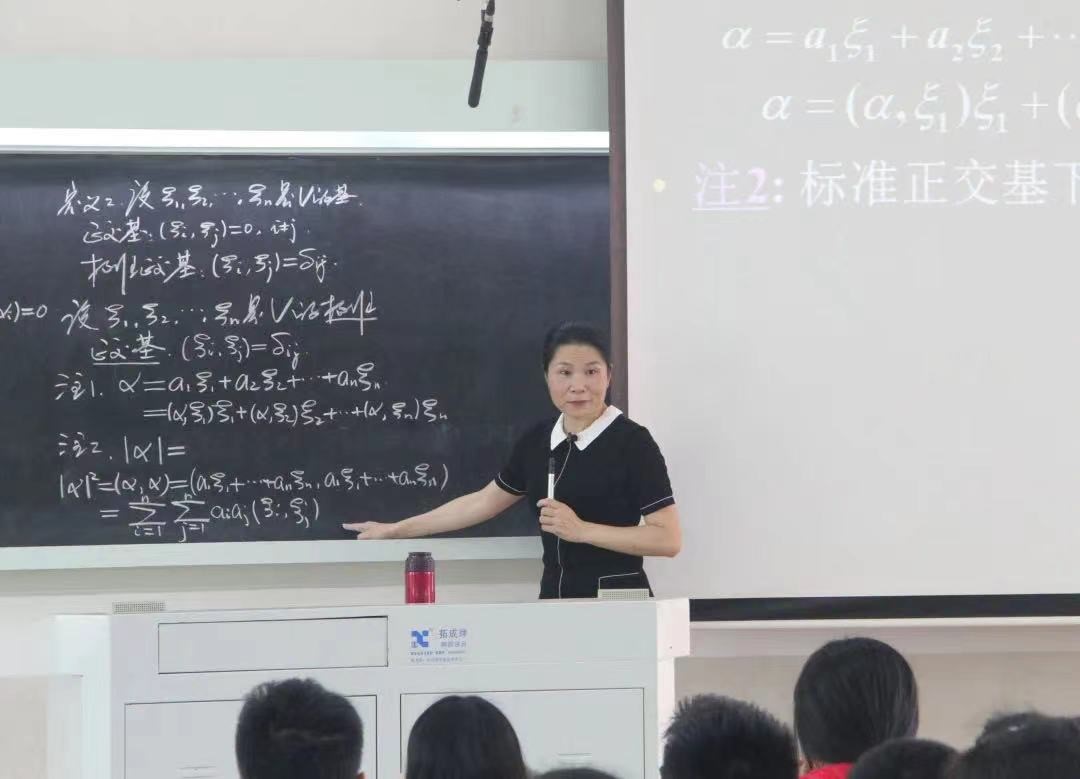 定义2. 设 ξ₁, ξ₂, …, ξₙ是V的基
正交基: (ξᵢ, ξⱼ)=0, i≠j.
标准正交基: (ξᵢ, ξⱼ)=δᵢⱼ.
)=0 设 ξ₁, ξ₂, …, ξₙ是V的标准
正交基. (ξᵢ, ξⱼ)=δᵢⱼ.
注1. α=a₁ξ₁+a₂ξ₂+…+aₙξₙ.
=(α,ξ₁)ξ₁+(α,ξ₂)ξ₂+…+(α,ξₙ)ξₙ
注2. |α|=
|α|²=(α,α)=(a₁ξ₁+…+aₙξₙ, a₁ξ₁+…+aₙξₙ)
=∑ᵢ₌₁ⁿ ∑ⱼ₌₁ⁿ aᵢaⱼ(ξᵢ,ξⱼ)
α = a₁ξ₁ + a₂ξ₂ + ⋯
α = (α,ξ₁)ξ₁ + (
注2: 标准正交基下
拓成烽